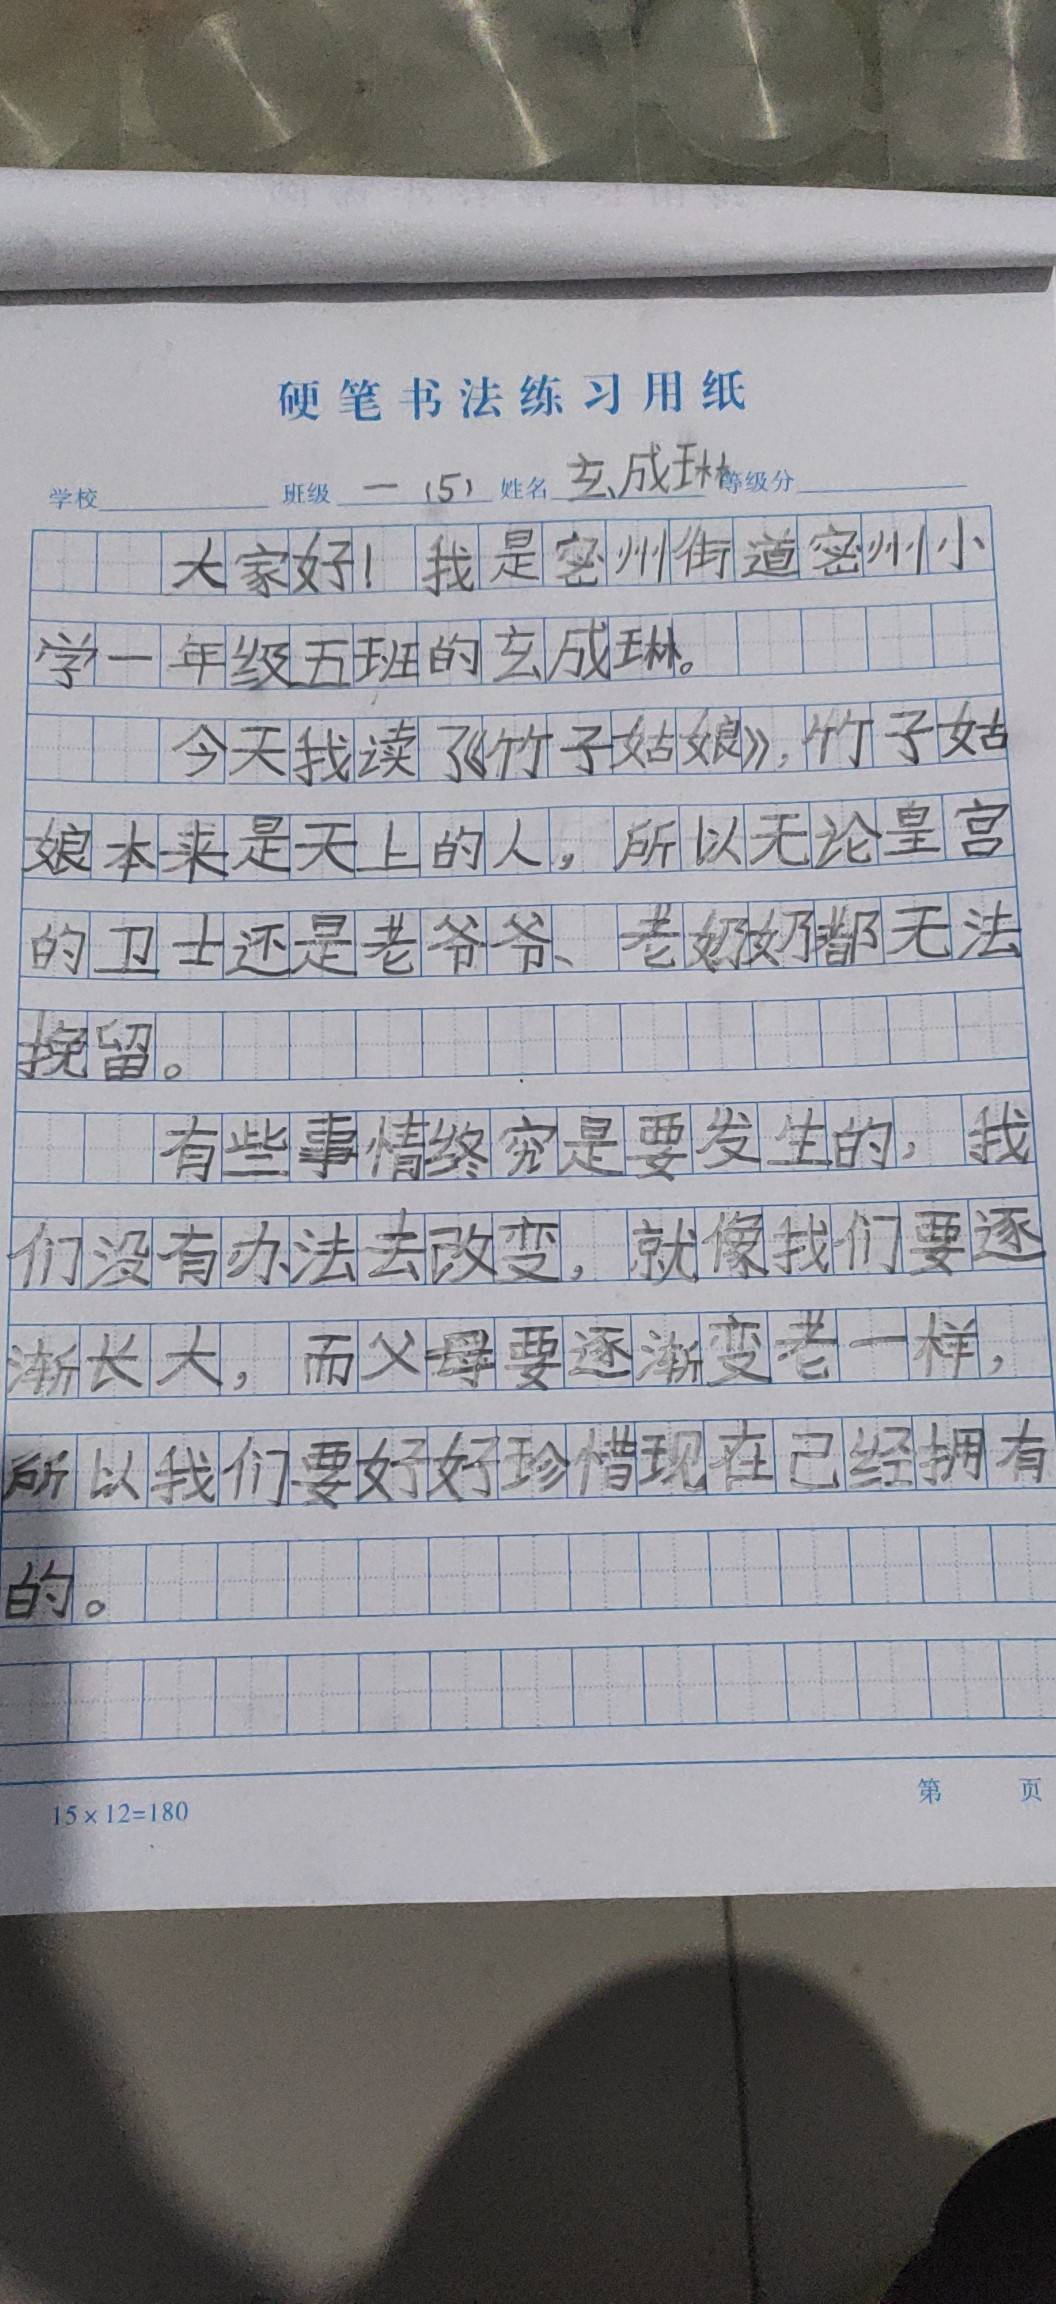 硬笔书法练习用纸
学校 班级 一(5) 姓名 玄成琳 等级分
大家好！我是密州街道密州小
学一年级五班的玄成琳。
今天我读了《竹子姑娘》，竹子姑
娘本来是天上的人，所以无论皇宫
的卫士还是老爷爷、老奶奶都无法
挽留。
有些事情终究是要发生的，我
们没有办法去改变，就像我们要逐
渐长大，而父母要逐渐变老一样，
所以我们要好好珍惜现在已经拥有
的。
15×12=180
第 页